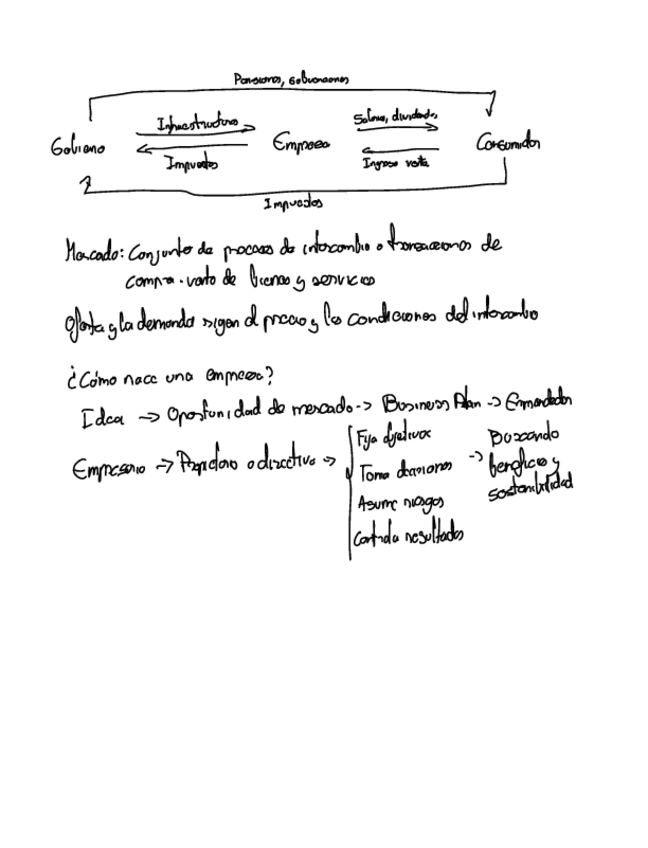 Pensiones, subvenciones
Gobierno Infraestructura Empresa Salarios, dividendos Consumidor
Impuestos Ingreso venta
Impuestos
Mercado: Conjunto de procesos de intercambio o transacciones de
compra-venta de bienes y servicios
Oferta y la demanda rigen el precio y las condiciones del intercambio
¿Cómo nace una empresa?
Idea -> Oportunidad de mercado -> Business Plan -> Emprendedor
Empresario -> Propietario o directivo ->
Fija objetivos
Toma decisiones
Asume riesgos
Controla resultados
-> Buscando
beneficios y
sostenibilidad